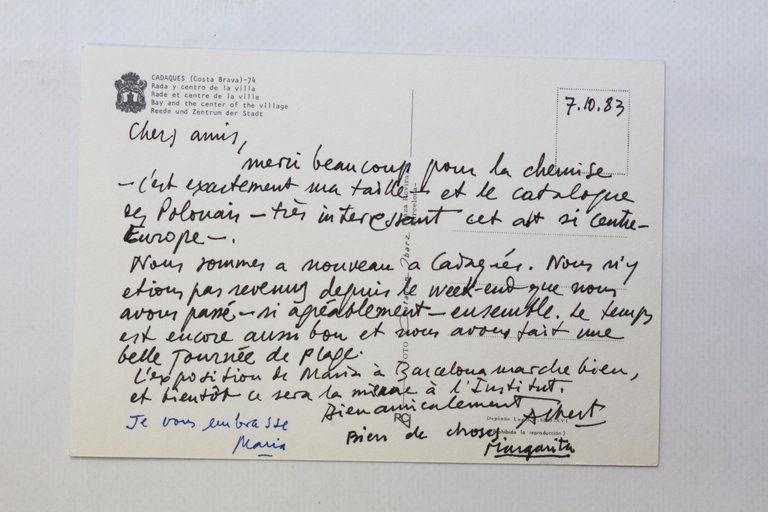 CADAQUES (Costa Brava)-74
Rada y centro de la villa
Rade et centre de la ville
Bay and the center of the village
Reede und Zentrum der Stadt
7.10.83
Chers amis,
merci beaucoup pour la chemise
- c'est exactement ma taille - et le catalogue
des Polonais - très interessant cet art si centre-
Europe -.
Nous sommes a nouveau a Cadaqués. Nous n'y
etions pas revenus depuis le week-end que nous
avous passé - si agréablement - ensemble. Le temps
est encore aussi bon et nous avous fait une
belle journée de plage.
L'exposition de Maria à Barcelona marche bien,
et bientôt ce sera la mienne à l'Institut.
Bien amicalement Albert
Je vous embrasse
Maria
Bien de choses
Margarita
FOTO
Barcelona
Depósito
(Prohibida la reproducción)